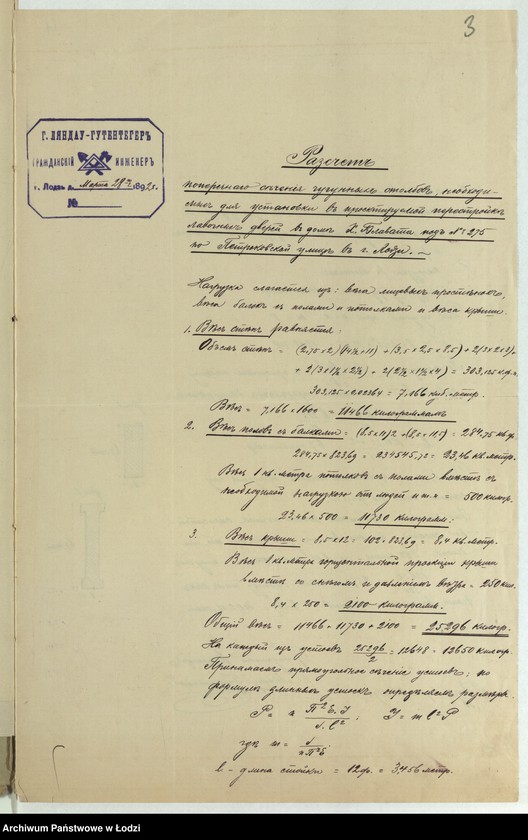 3
Г. ЛЯНДАУ-ГУТЕНТЕГЕРЪ
ГРАЖДАНСКІЙ ИНЖЕНЕРЪ
г. Лодзь д. Марта 29 1892 г.
№
Разсчетъ
поперечнаго сѣченія чугунныхъ столбовъ, необходи-
мыхъ для установки въ проектируемой перестройкѣ
лавочныхъ дверей въ домѣ Х. Плавата подъ № 275
по Петроковской улицѣ въ г. Лодзи. —
Нагрузка слагается изъ: вѣса лицевыхъ простѣнковъ,
вѣса балокъ съ полами и потолками и вѣса крыши.
1. Вѣсъ стѣнъ равняется:
Объемъ стѣнъ =
= 303,125 к.ф.
303,125 × 0,02364 = 7,166 куб. метр.
Вѣсъ = 7,166 × 1600 = 11466 килограммамъ
2. Вѣсъ половъ съ балками = (8,5 × 11) 2 + = 284,75 кв. ф.
284,75 × 823,69 = 234545,72 = 23,46 кв. метр.
Вѣсъ 1 кв. метра потолковъ съ полами вмѣстѣ съ
необходимой нагрузкою отъ людей и т. п. = 500 килгр.
23,46 × 500 = 11730 килограмм:
3. Вѣсъ крыши = 8,5 × 12 = 102 × 823,69 = 8,4 кв. метр.
Вѣсъ 1 кв. метра горизонтальной проекціи крыши
вмѣстѣ со снѣгомъ и давленіемъ вѣтра = 250 кил.
8,4 × 250 = 2100 килограмм.
Общій вѣсъ = 11466 + 11730 + 2100 = 25296 килогр.
На каждый изъ устоевъ 25296/2 = 12648 = 12650 килогр.
Принимаемъ прямоугольное сѣченіе устоевъ; по
формулѣ длинныхъ стоекъ опредѣляемъ размѣры.
J = m l² P
гдѣ m =
l - длина стойки = 12 ф. = 3,456 метр.
Archiwum Państwowe w Łodzi